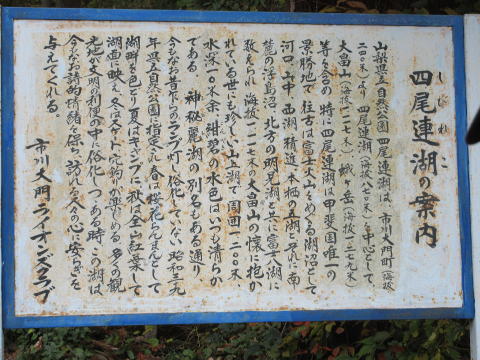 四尾連湖の案内
しびれこ
山梨県立自然公園 四尾連湖は、市川大門町(海抜
二四〇米)より四尾連湖(海抜八五〇米)を中心として
大畠山(海抜一一一七米) 蛾ヶ岳(海抜一二七九米)
等を含め 特に四尾連湖は 甲斐国唯一の
景勝地で 往古は富士火山をめぐる湖沼として
河口、山中、西湖、精進、本栖の五湖とそれに南
麓の浮島沼、北方の明見湖と共に富士八湖に
数えられ 海抜一一一七米の大畠山の懐に抱か
れている世にも珍しい山上湖で 周囲一、二〇〇米
水深一〇米余 紺碧の水色はいつも清らか
である。神秘麗湖の別名もある通り
今もなお昔ながらのマンプ町、俗化していない 昭和三九
年県立自然公園に指定され 春は桜花らんまんとして
湖畔を色どり夏はキャンプに、秋は全山紅葉して
湖面に映え 冬はスケート穴釣りが楽しめる 多くの観
光地が文明の利便の中に俗化しつつある時、この湖は
今もなお詩的情緒を保ち 訪れる人々の心に安らぎを
与えてくれる
市川大門ライオンズクラブ